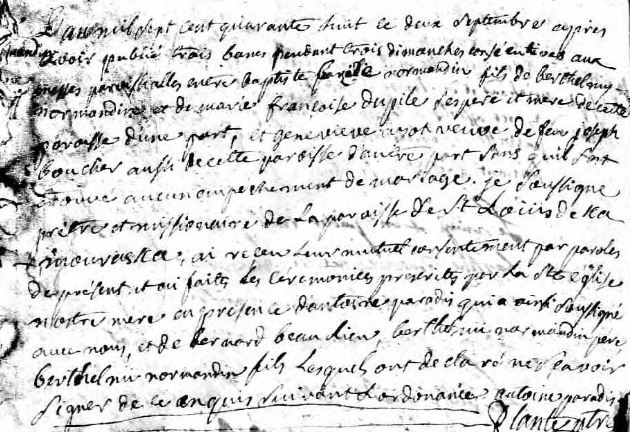 L'an mil sept cent quarante huit ce deux septembre apres
avoir publié trois bancs pendant trois dimanches consecutives aux
messes paroissialles entre baptiste normandin fils de berthelmy
normandin et de marie francoise dupile ses pere et mere de cette
paroisse d'une part, et genevieve ayot veuve de feu joseph
boucher aussi de cette paroisse d'autre part sans quil soit
trouvé aucun empechement de mariage. je soussigne
pretre et missionaire de la paroisse de St Loüis de Ka
mouraska, ai receu leur mutuel consentement par paroles
de présent et ai faits les ceremonies prescrites par la Ste eglise
nostre mere en presence dantoine paradis qui a ainsi soussigné
avec nous, et de bernard beaulieu, berthelmi normandin pere
berthelmi normandin fils Lesquels ont declaré ne sçavoir
signer de ce enquis suivant Lordonance antoine paradis
Plante ptre